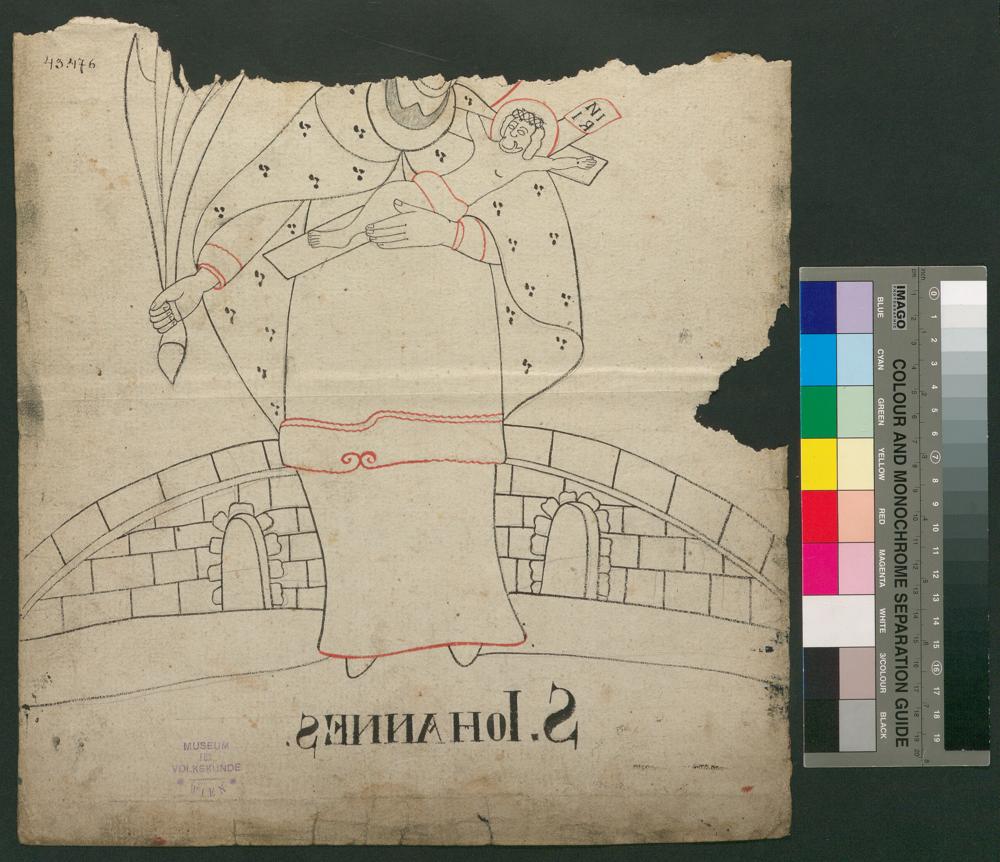 43.476
INRI
S. IOHANNES.
MUSEUM
FÜR
VOLKSKUNDE
WIEN
IMAGO
COLOUR AND MONOCHROME SEPARATION GUIDE
BLUE
CYAN
GREEN
YELLOW
RED
MAGENTA
WHITE
3/COLOUR
BLACK
cm
mm
0 1 2 3 4 5 6 7 8 9 10 11 12 13 14 15 16 17 18 19